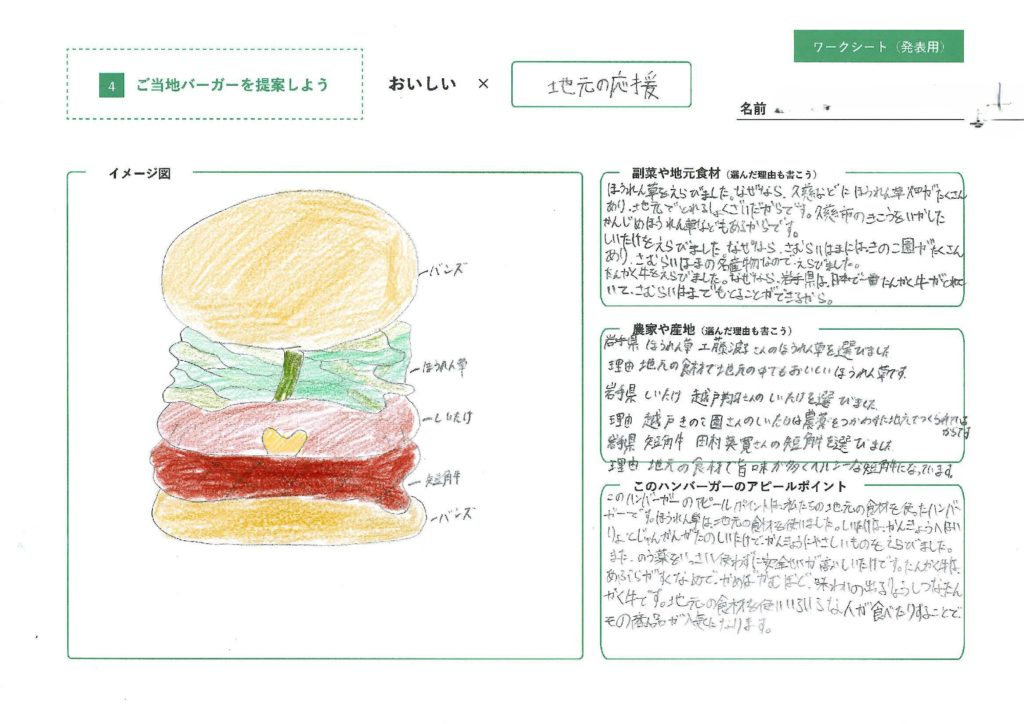 ワークシート（発表用）
4 ご当地バーガーを提案しよう
おいしい × 地元の応援
名前
イメージ図
バンズ
ほうれん草
しいたけ
短角牛
バンズ
副菜や地元食材（選んだ理由も書こう）
ほうれん草をえらびました。なぜなら、久慈などにほうれん草畑がたくさん
あり、地元でとれるしょくざいだからです。久慈市のきこうをいかした
かんじめほうれん草などもあるからです。
しいたけをえらびました。なぜなら、さむらいはまにはきのこ園がたくさん
あり、さむらいはまの名産物なので、えらびました。
たんかく牛をえらびました。なぜなら、岩手県は、日本で一番たんかく牛がとれて
いて、さむらいはまでもとることができるから。
農家や産地（選んだ理由も書こう）
岩手県 ほうれん草 工藤 さんのほうれん草を選びました
理由 地元の食材で地元の中でもおいしいほうれん草です。
岩手県 しいたけ 越戸 さんのしいたけを選びました
理由 越戸きのこ園さんのしいたけは農薬をつかわず地元でつくられている
からです
岩手県 短角牛 田村英寛さんの短角牛を選びました
理由 地元の食材で旨味が多くヘルシーな短角牛になっています。
このハンバーガーのアピールポイント
このハンバーガーのアピールポイントは、私たちの地元の食材を使ったハンバ
ーガーです。ほうれん草は、地元の食材を使いました。しいたけは、かんきょうへはい
りょとじゅんかんがたのしいたけで、かんきょうにやさしいものをえらびました。
また、のう薬をいっさい使わずに安全せいが高いしいたけです。たんかく牛は、
あぶらがすくなめで、かめばかむほど、味わいの出るりょうしつなたん
かく牛です。地元の食材を使いいろいろな人が食べたりすることで、
その商品が人気になります。